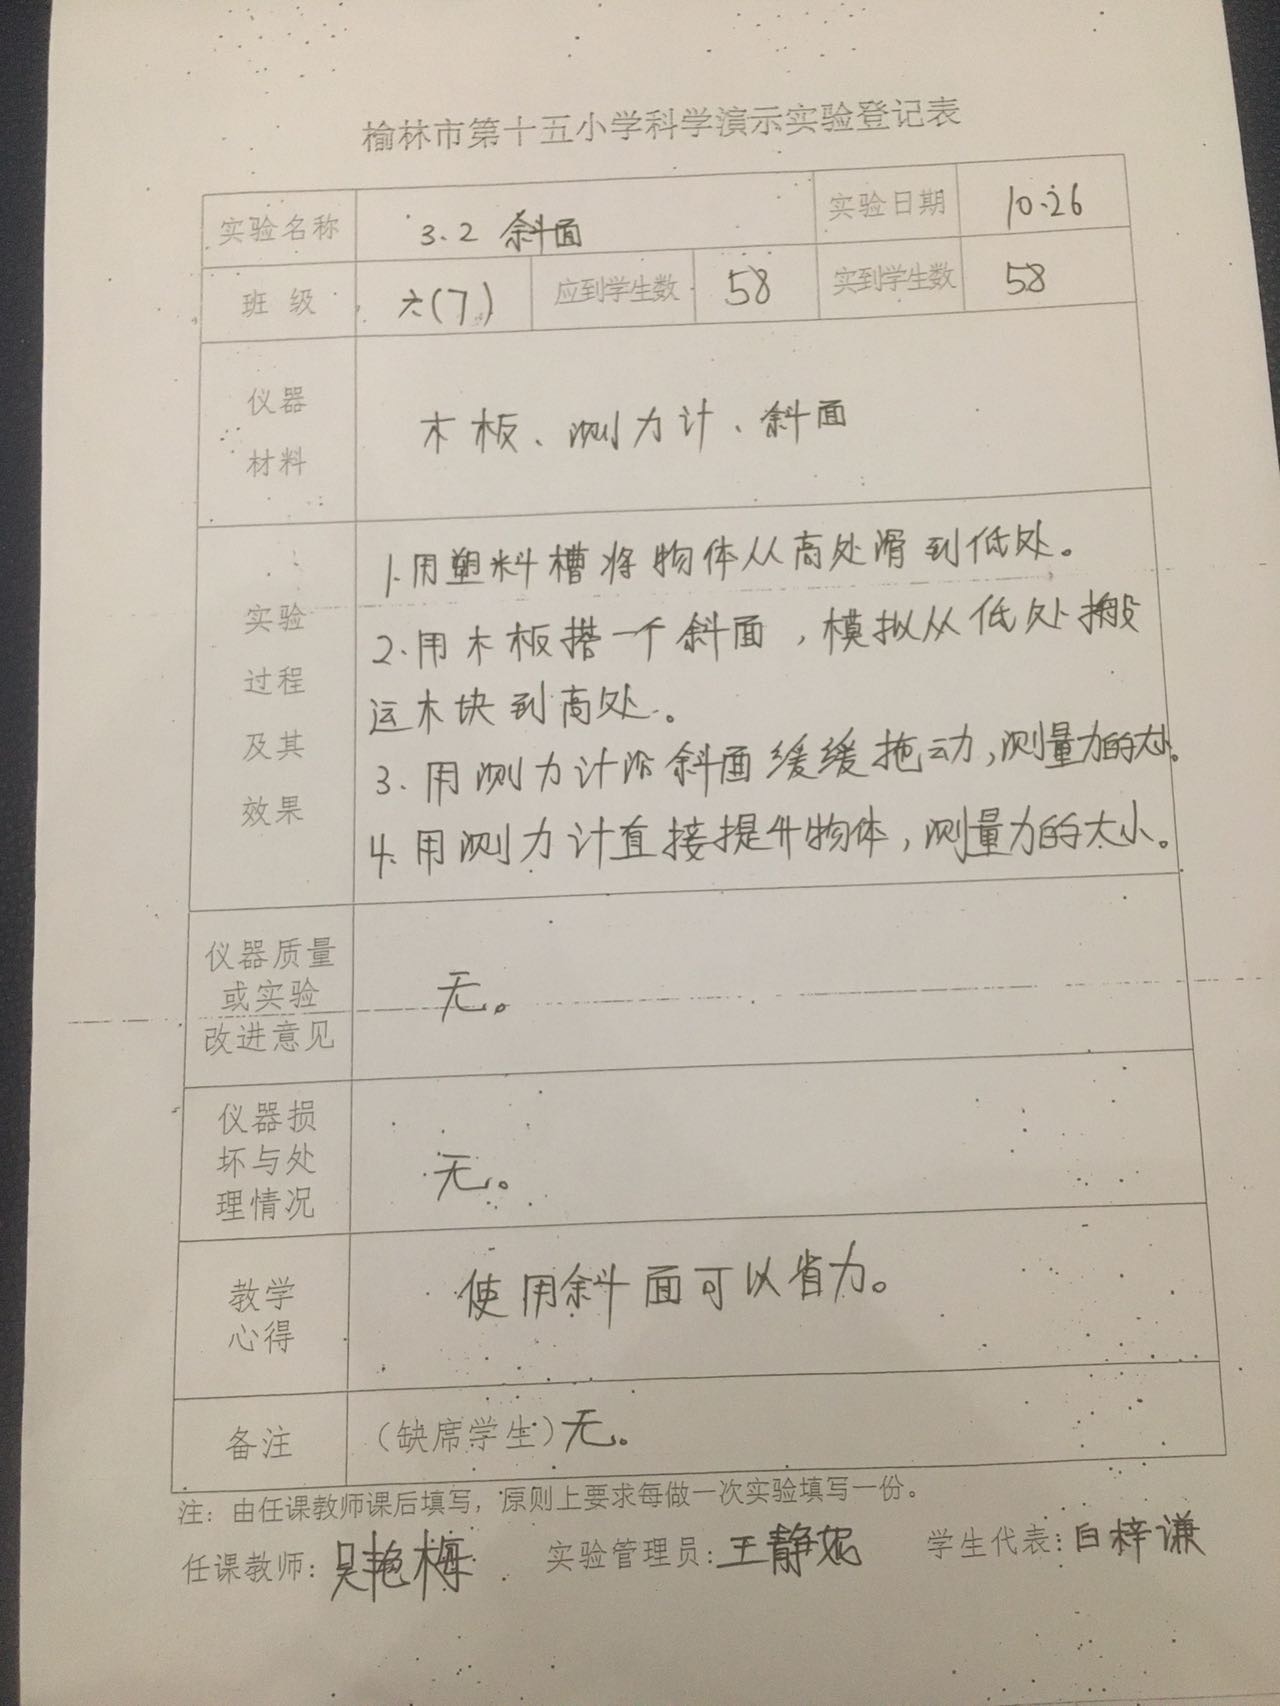 榆林市第十五小学科学演示实验登记表
实验名称 3.2 斜面 实验日期 10.26
班 级 六(7) 应到学生数 58 实到学生数 58
仪器
材料
木板、测力计、斜面
实验
过程
及其
效果
1.用塑料槽将物体从高处滑到低处。
2.用木板搭一个斜面,模拟从低处搬
运木块到高处。
3.用测力计沿斜面缓缓拖动,测量力的大小。
4.用测力计直接提升物体,测量力的大小。
仪器质量
或实验
改进意见
无。
仪器损
坏与处
理情况
无。
教学
心得
使用斜面可以省力。
备注 (缺席学生)无。
注：由任课教师课后填写，原则上要求每做一次实验填写一份。
任课教师：吴艳梅 实验管理员：王静妮 学生代表：白梓谦